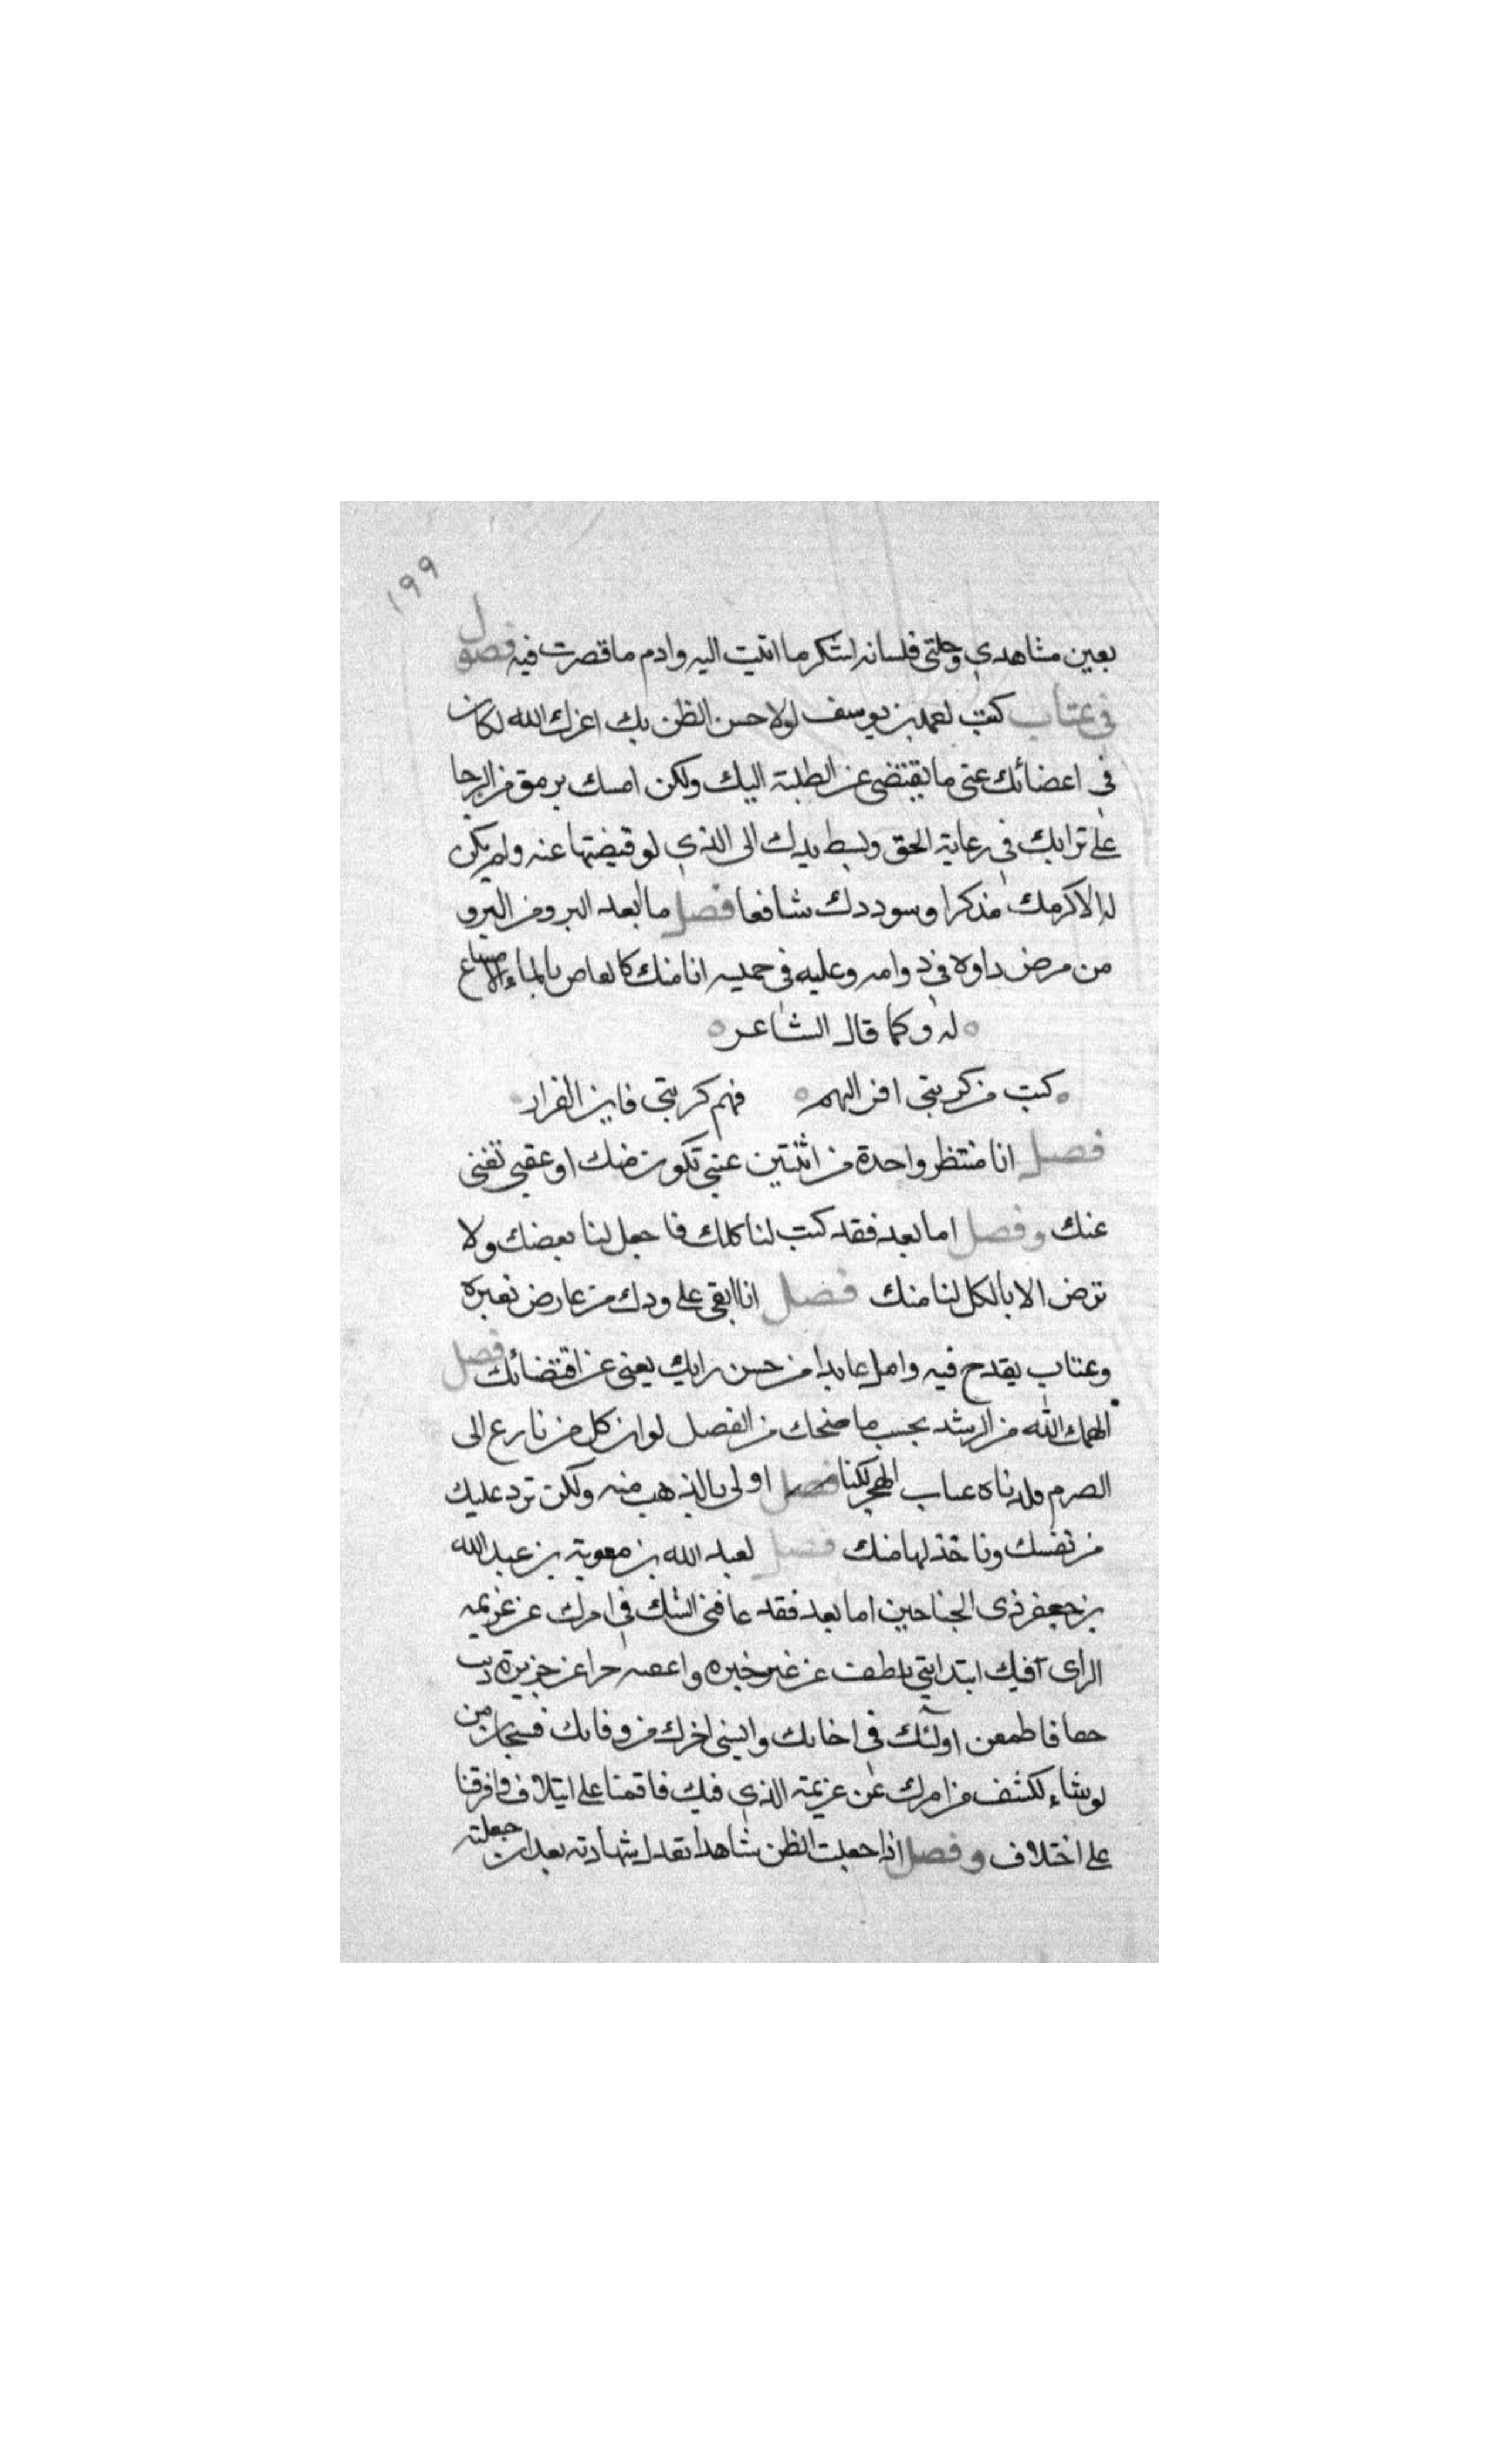 ١٩٩
بعين مشاهدي وخلتي فلسانه استكر ما اتيت اليه وادم ما قصرت فيه فصول
في عتاب كتب لعمد بن يوسف لولا حسن الظن بك اعزك الله لكان
في اعضائك عني ما يقتضي عن الطلبة اليك ولكن امسك برمق من الرجا
على ترابك في رعاية الحق وبسط يدك الى الذي لو قبضتها عنه ولم يكن
له الا كرمك مذكرا وسوددك شافعا فصل ما بعد البرو من البرو
من مرض داوه في دوامه وعليه في حميه انا منك كالعاص بالماء لا مساع
له وكما قال الشاعر
كنت من كربتي افز اليهم فهم كربتي فاين الفرار
فصل انا منتظر واحدة من اثنتين عتبي تكون منك او عقبي تغني
عنك وفصل اما بعد فقد كنت لنا كلك فاجعل لنا بعضك ولا
ترض الا بالكل لنا منك فصل انا ابقي على ودك من عارض تغيره
وعتاب يقدح فيه وامل عابدا من حسن رايك يغني عن اقتضائك فصل
الهمك الله من الرشد بحسب ما منحك من الفضل لو ان كل من نازع الى
الصرم قلدناه عناب الهجر لكنا فصل اولى بالذهب منه ولكن ترد عليك
من نفسك وناخذ لها منك فصل لعبد الله بن معوية بن عبد الله
بن جعفر ذي الجناحين اما بعد فقد عافني الشك في امرك عن عزيمه
الراي فيك ابتداتني بلطف عن غير خبره واعقبه حرا عن جزيرة ذنب
فاطمعن اولئك في اخائك وايسني اخرك من وفائك فسبحان من
لو شاء لكشف من امرك عن عزيمة الذي فيك فاقمنا على ايتلاف وافرقنا
على اختلاف وفصل اذا جعلت الظن شاهدا تعدل شهادته بعد ان جعلته